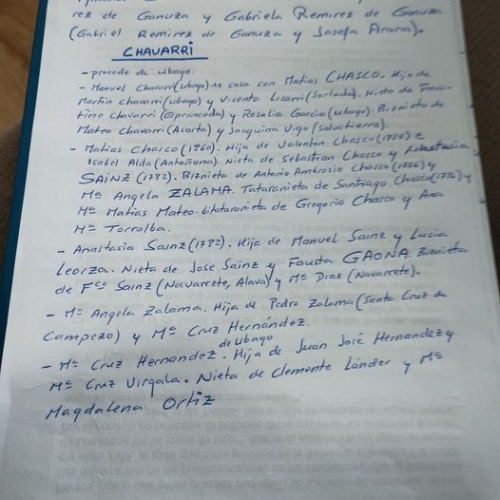 rez de Ganuza y Gabriela Remirez de Ganuza
(Gabriel Remirez de Ganuza y Josefa Arana).
CHAVARRI
- procede de Ubago.
- Manuel Chavarri (Ubago) se casa con Matias CHASCO. Hijo de
Martin Chavarri (Ubago) y Vicenta Lisarri (Sorlada). Nieto de
tino Chavarri (Espronceda) y Rosalia Garcia (Ubago). Biznieto de
Mateo Chavarri (Acarta) y Joaquina Vigo (Salvatierra).
- Matias Chasco (1860). Hija de Valentin Chasco (1825) e
Isabel Alda (Antoñana). Nieta de Sebastian Chasco y Anastasia
SAINZ (1792). Biznieta de Antonio Ambrosio Chasco (1766) y
Mª Angela ZALAMA. Tataranieta de Santiago Chasco (1736) y
Mª Matias Mateo. bitataranieta de Gregorio Chasco y Ana
Mª Torralba.
- Anastasia Sainz (1792). Hija de Manuel Sainz y Lucia
Leorza. Nieta de Jose Sainz y Fausta GAONA. Biznieta
de Fco Sainz (Navarrete, Alava) y Mª Diaz (Navarrete).
- Mª Angela Zalama. Hija de Pedro Zalama (Santa Cruz de
Campezo) y Mª Cruz Hernández.
de Ubago
- Mª Cruz Hernandez. Hija de Juan José Hernandez y
Mª Cruz Virgala. Nieta de Clemente Lánder y Mª
Magdalena Ortiz